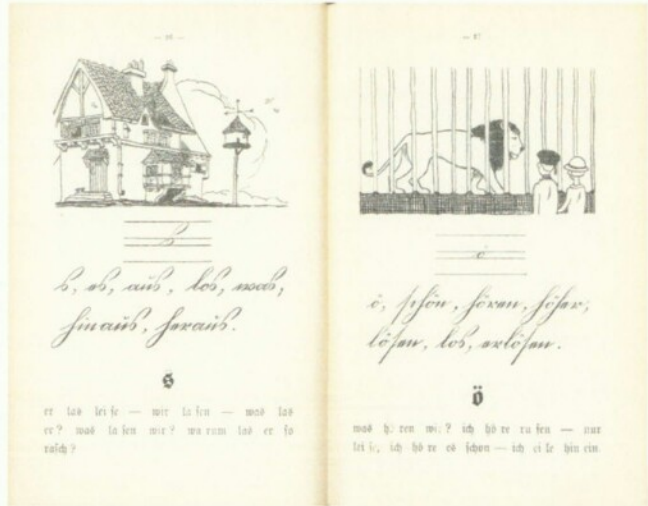 s
s, es, aus, los, was,
hinaus, heraus.
s
er las lei se — wir la sen — was las
er? was la sen wir? wa rum las er so
rasch?
ö
ö, schön, hören, höher,
lösen, los, erlösen.
ö
was hö ren wir? ich hö re ru fen — nur
lei se, ich hö re es schon — ich ei le hin ein.